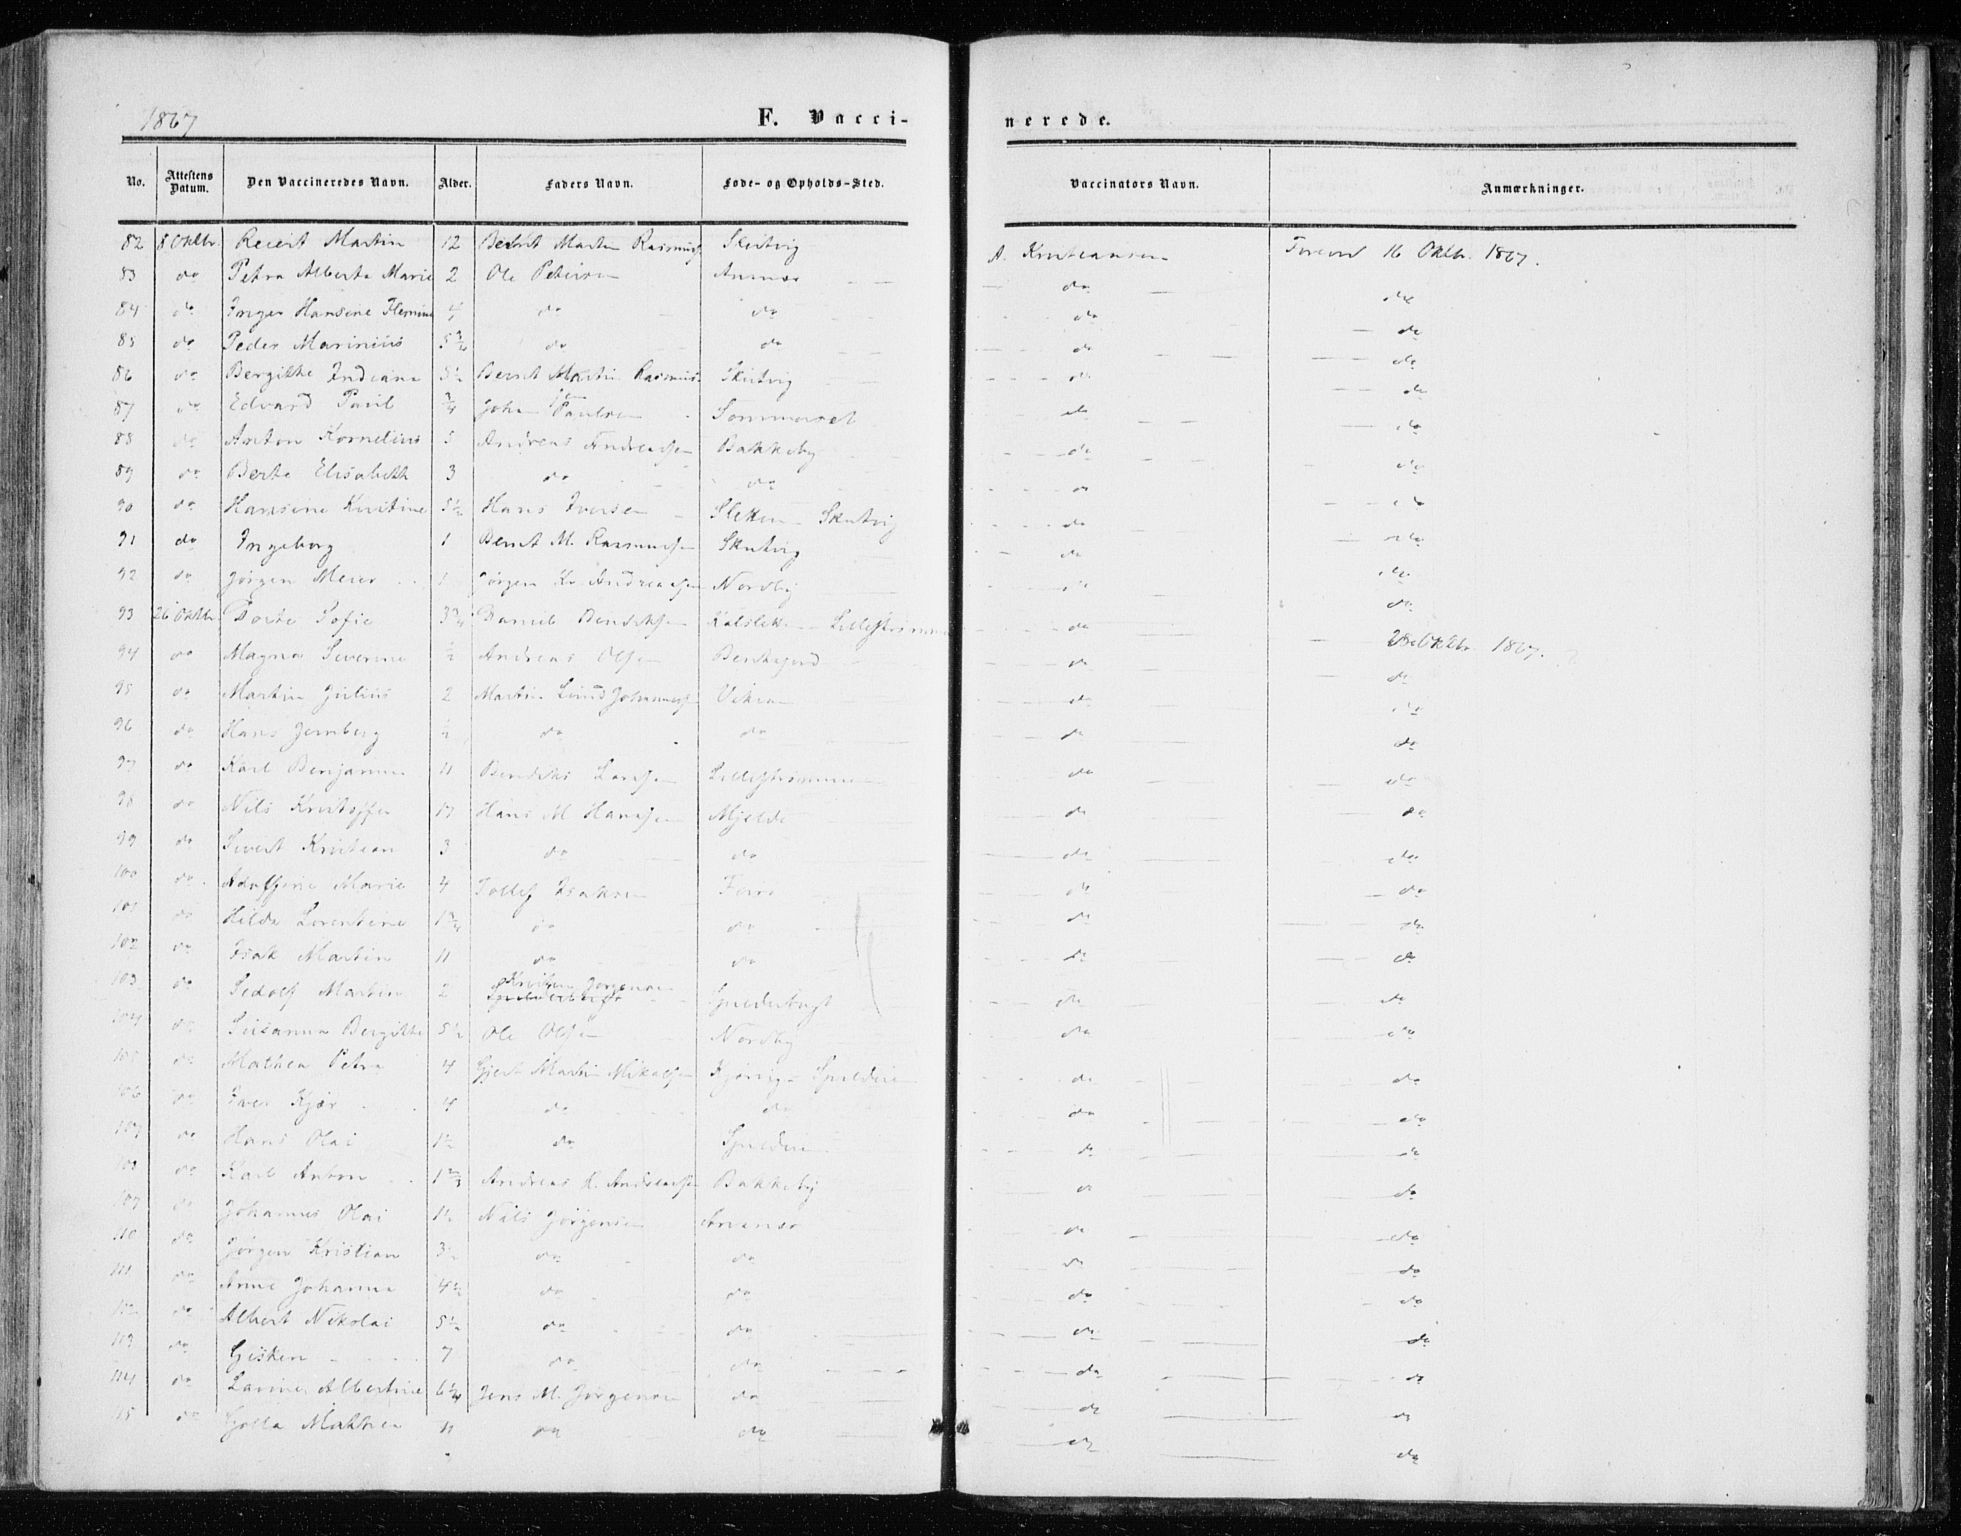 1867 F. Vacci- nerede.
No. Attestens Datum. Den Vaccineredes Navn. Alder. Faders Navn. Føde- og Opholds-Sted. Vaccinators Navn. Anmærkninger.
82 8 Oktbr. Martin 12 Martin Skutvig A. Kristiansen 16 Oktb. 1867.
83 do Petra Alberta Marie 2 Ole Petersen do do
84 do Inger Hansine 4 do do do do
85 do Peder Marinius 5 do do do do
86 do Bergitte Indiana 5½ Bernt Martin Rasmuss. Skutvig do do
87 do Edvard Paul ¾ Johan Paulsen Sommerset do do
88 do Anton Kornelius 5 Andreas Andreassen Bakkeby do do
89 do Berte Elisabeth 3 do do do do
90 do Hansine Kristine 5½ Hans Iversen Sletten Skutvig do do
91 do Ingeborg 1 Bernt M. Rasmussen Skutvig do do
92 do Jørgen Meier 1 Jørgen Kr. Andreassen Nordby do do
93 26 Oktbr. Dorte Sofie 3¾ Daniel Bendiksen Lillestrømmen do Oktbr 1867.
94 do Magna Severine ½ Andreas Olsen do do
95 do Martin Julius 2 Martin Lund Johannes Viken do do
96 do Hans Jernberg ½ do do do do
97 do Karl Benjamin 11 Bendiks Larsen Lillestrømmen do do
98 do Nils Kristoffer 17 Hans M Hansen Mjelde do do
99 do Sivert Kristian 3 do do do do
100 do Marie 4 Tollef Isaksen do do
101 do Hilda Lorentine 1¾ do do do do
102 do Isak Martin 11 do do do do
103 do Sedolf Martin 2 Kristian Jørgensen Spilderbugt do do
104 do Susanna Bergitte 5½ Ole Olsen Nordby do do
105 do Mathea Petra 4 Gjert Martin Mikalsen Spildren do do
106 do Iver Kjær 4 do do do do
107 do Hans Olai 1½ do Spildren do do
108 do Karl Anton 1⅔ Andreas H. Andreassen Bakkeby do do
109 do Johannes Olai 1½ Nils Jørgensen do do
110 do Jørgen Kristian 3½ do do do do
111 do Anne Johanna 4½ do do do do
112 do Albert Nikolai 5½ do do do do
113 do Gisken 7 do do do do
114 do Lavine Albertine 6¼ Jens M. Jørgensen do do do
115 do Mathea 11 do do do do